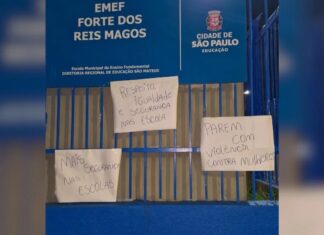 EMEF
FORTE DOS
REIS MAGOS
Escola Municipal de Ensino Fundamental
DIRETORIA REGIONAL DE EDUCAÇÃO SÃO MATEUS
CIDADE DE
SÃO PAULO
EDUCAÇÃO
RESPEITO
IGUALDADE
E SEGURANÇA
NAS ESCOLA
PAREM
COM
VIOLÊNCIA
CONTRA MULHERES
MAIS
SEGURANÇA
NAS
ESCOLAS